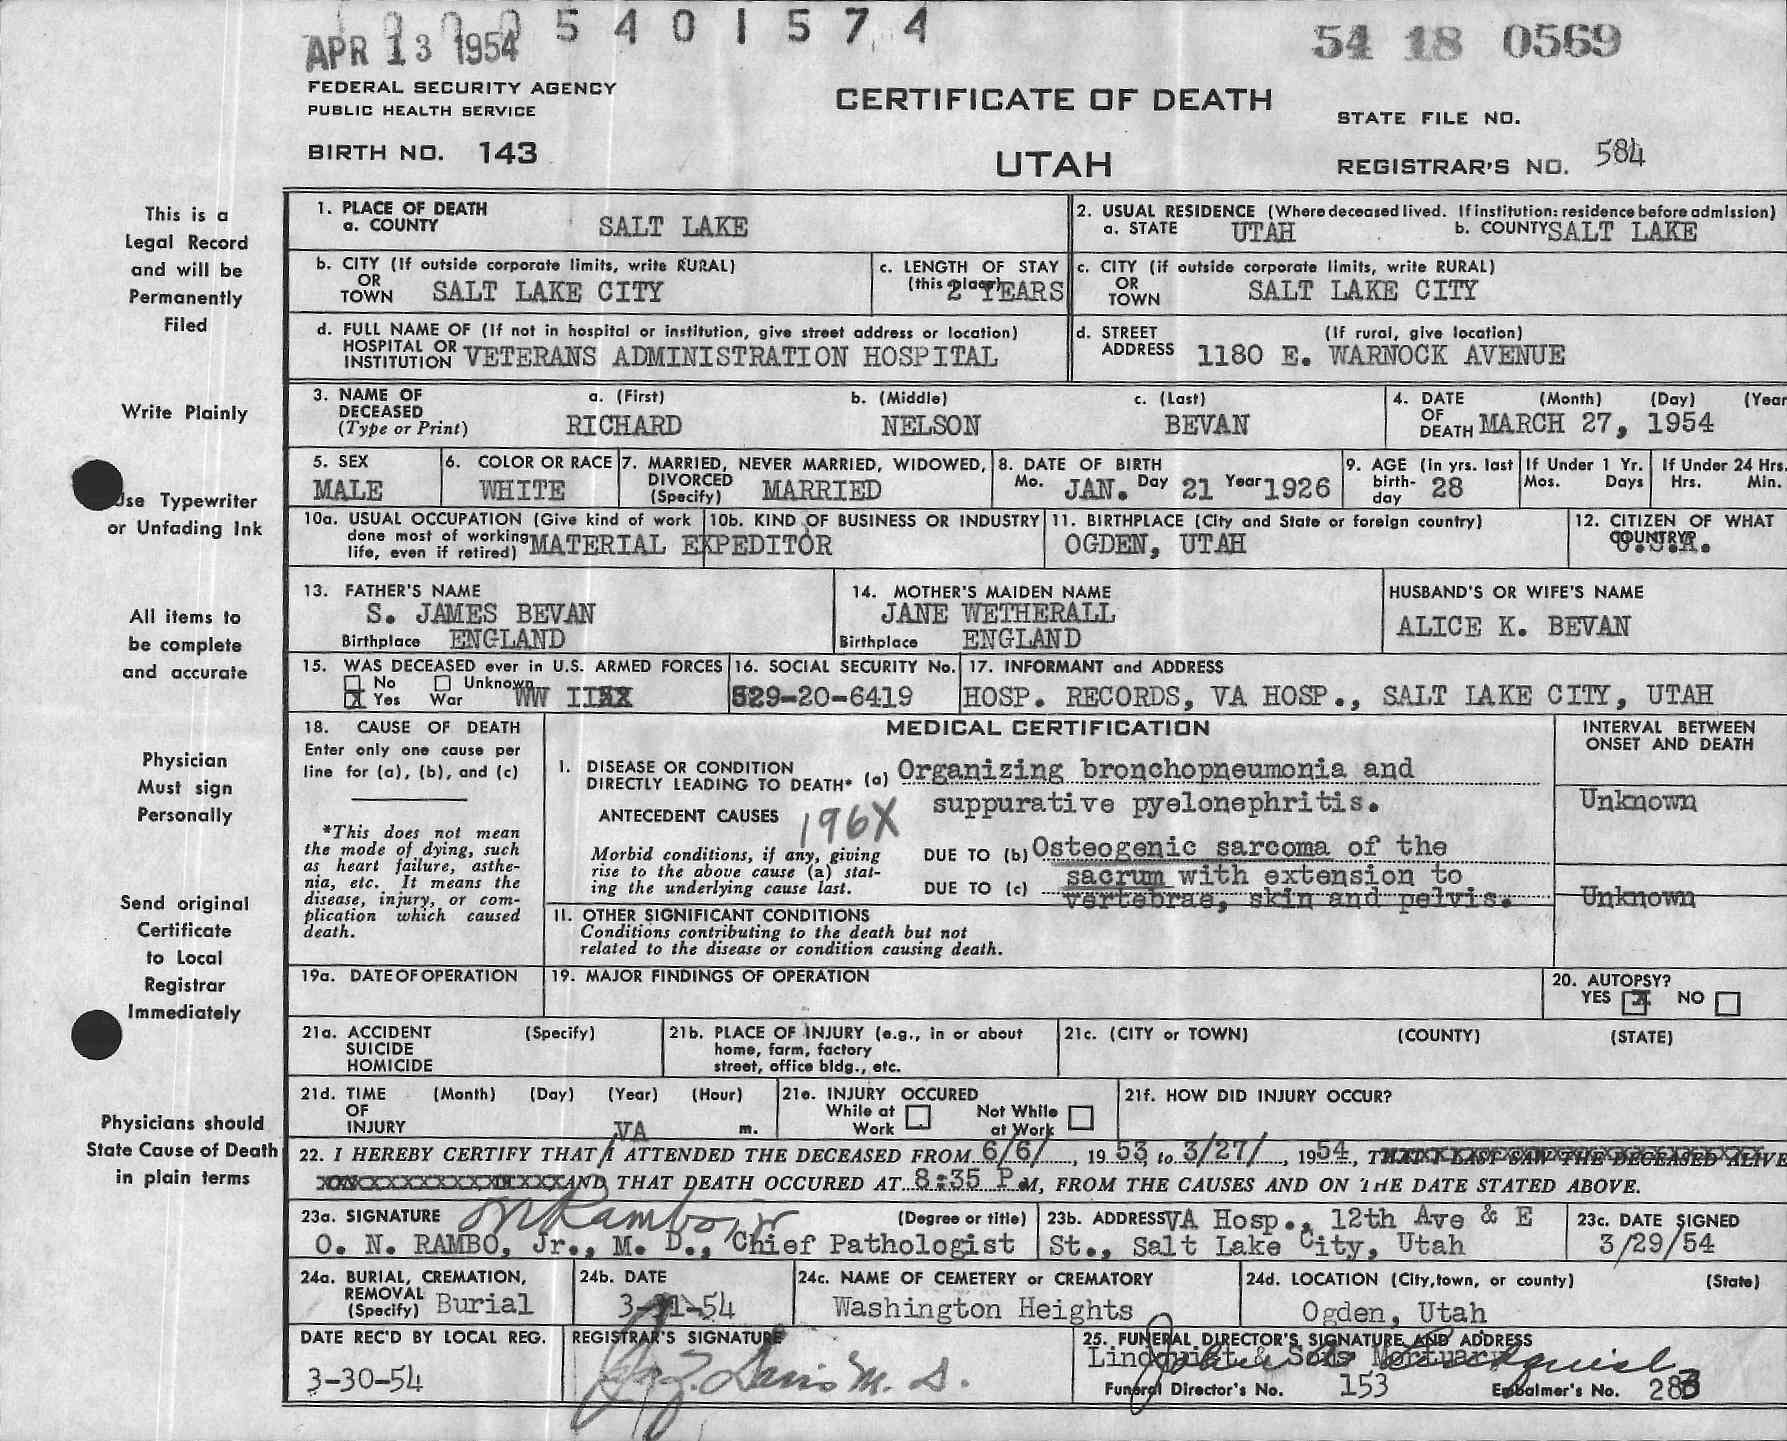 APR 13 1954 5 4 0 1 5 7 4 54 18 0569
FEDERAL SECURITY AGENCY
PUBLIC HEALTH SERVICE
CERTIFICATE OF DEATH
STATE FILE NO.
BIRTH NO. 143
UTAH
REGISTRAR'S NO. 584
This is a
Legal Record
and will be
Permanently
Filed
1. PLACE OF DEATH
a. COUNTY SALT LAKE
2. USUAL RESIDENCE (Where deceased lived. If institution: residence before admission)
a. STATE UTAH b. COUNTY SALT LAKE
b. CITY (If outside corporate limits, write RURAL)
OR
TOWN SALT LAKE CITY
c. LENGTH OF STAY
(this place) 2 YEARS
c. CITY (if outside corporate limits, write RURAL)
OR
TOWN SALT LAKE CITY
d. FULL NAME OF (If not in hospital or institution, give street address or location)
HOSPITAL OR
INSTITUTION VETERANS ADMINISTRATION HOSPITAL
d. STREET (If rural, give location)
ADDRESS 1180 E. WARNOCK AVENUE
Write Plainly
3. NAME OF a. (First) b. (Middle) c. (Last)
DECEASED
(Type or Print) RICHARD NELSON BEVAN
4. DATE (Month) (Day) (Year
OF
DEATH MARCH 27, 1954
Use Typewriter
or Unfading Ink
5. SEX
MALE
6. COLOR OR RACE
WHITE
7. MARRIED, NEVER MARRIED, WIDOWED,
DIVORCED
(Specify) MARRIED
8. DATE OF BIRTH
Mo. JAN. Day 21 Year 1926
9. AGE (In yrs. last
birth-
day 28
If Under 1 Yr.
Mos. Days
If Under 24 Hrs.
Hrs. Min.
10a. USUAL OCCUPATION (Give kind of work
done most of working
life, even if retired) MATERIAL EXPEDITOR
10b. KIND OF BUSINESS OR INDUSTRY
11. BIRTHPLACE (City and State or foreign country)
OGDEN, UTAH
12. CITIZEN OF WHAT
COUNTRY? U.S.A.
All items to
be complete
and accurate
13. FATHER'S NAME
S. JAMES BEVAN
Birthplace ENGLAND
14. MOTHER'S MAIDEN NAME
JANE WETHERALL
Birthplace ENGLAND
HUSBAND'S OR WIFE'S NAME
ALICE K. BEVAN
15. WAS DECEASED ever in U.S. ARMED FORCES
No Unknown
X Yes War WW II
16. SOCIAL SECURITY No.
529-20-6419
17. INFORMANT and ADDRESS
HOSP. RECORDS, VA HOSP., SALT LAKE CITY, UTAH
Physician
Must sign
Personally
18. CAUSE OF DEATH
Enter only one cause per
line for (a), (b), and (c)
*This does not mean
the mode of dying, such
as heart failure, asthe-
nia, etc. It means the
disease, injury, or com-
plication which caused
death.
MEDICAL CERTIFICATION
INTERVAL BETWEEN
ONSET AND DEATH
I. DISEASE OR CONDITION
DIRECTLY LEADING TO DEATH* (a) Organizing bronchopneumonia and
suppurative pyelonephritis. Unknown
ANTECEDENT CAUSES 196X
Morbid conditions, if any, giving
rise to the above cause (a) stat-
ing the underlying cause last.
DUE TO (b) Osteogenic sarcoma of the
DUE TO (c) sacrum with extension to
vertebrae, skin and pelvis. Unknown
II. OTHER SIGNIFICANT CONDITIONS
Conditions contributing to the death but not
related to the disease or condition causing death.
Send original
Certificate
to Local
Registrar
Immediately
19a. DATE OF OPERATION
19. MAJOR FINDINGS OF OPERATION
20. AUTOPSY?
YES X NO
21a. ACCIDENT (Specify)
SUICIDE
HOMICIDE
21b. PLACE OF INJURY (e.g., in or about
home, farm, factory
street, office bldg., etc.
21c. (CITY or TOWN) (COUNTY) (STATE)
21d. TIME (Month) (Day) (Year) (Hour)
OF
INJURY m.
21e. INJURY OCCURED
While at Work Not While at Work
21f. HOW DID INJURY OCCUR?
Physicians should
State Cause of Death
in plain terms
22. I HEREBY CERTIFY THAT VA / I ATTENDED THE DECEASED FROM 6/6/, 1953, to 3/27/, 1954, THAT I LAST SAW THE DECEASED ALIVE
AND THAT DEATH OCCURED AT 8:35 P.M, FROM THE CAUSES AND ON THE DATE STATED ABOVE.
23a. SIGNATURE O N Rambo, Jr (Degree or title)
O. N. RAMBO, Jr., M. D., Chief Pathologist
23b. ADDRESS VA Hosp., 12th Ave & E
St., Salt Lake City, Utah
23c. DATE SIGNED
3/29/54
24a. BURIAL, CREMATION,
REMOVAL
(Specify) Burial
24b. DATE
3-31-54
24c. NAME OF CEMETERY or CREMATORY
Washington Heights
24d. LOCATION (City, town, or county) (State)
Ogden, Utah
DATE REC'D BY LOCAL REG.
3-30-54
REGISTRAR'S SIGNATURE
Davis M. D.
25. FUNERAL DIRECTOR'S SIGNATURE AND ADDRESS
Lindquist & Sons Mortuary
Funeral Director's No. 153 Embalmer's No. 283